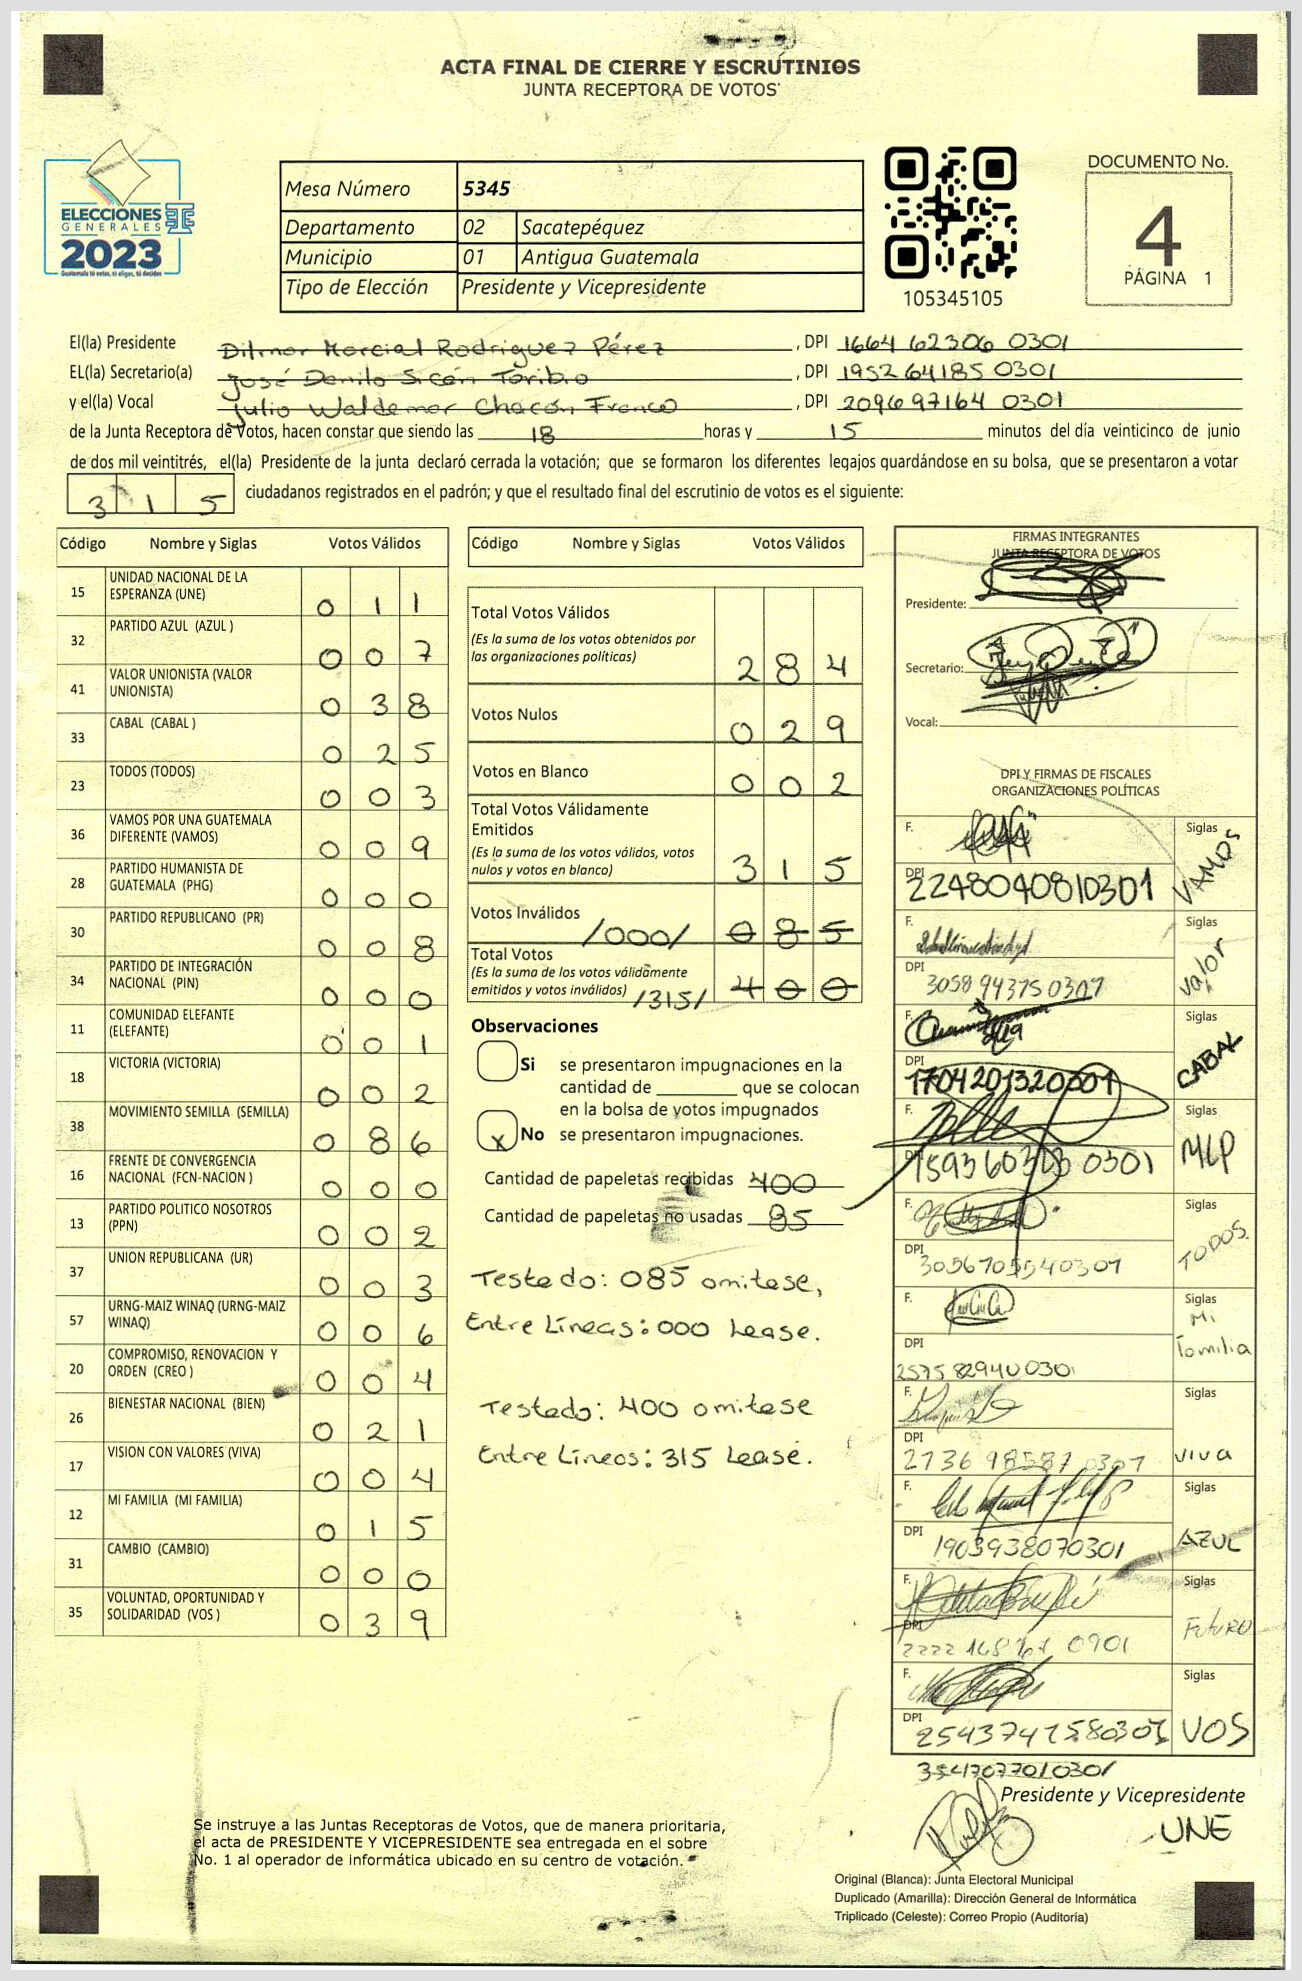 ACTA FINAL DE CIERRE Y ESCRUTINIOS
JUNTA RECEPTORA DE VOTOS
ELECCIONES
GENERALES
2023
Guatemala tú votas, tú eliges, tú decides
Mesa Número 5345
Departamento 02 Sacatepéquez
Municipio 01 Antigua Guatemala
Tipo de Elección Presidente y Vicepresidente
105345105
DOCUMENTO No.
4
PÁGINA 1
El(la) Presidente Dilmar Marcial Rodriguez Pérez, DPI 1664 62306 0301
EL(la) Secretario(a) José Danilo Sicán Toribio, DPI 1952 64185 0301
y el(la) Vocal Julio Waldemar Chacón Franco, DPI 2096 97164 0301
de la Junta Receptora de Votos, hacen constar que siendo las 18 horas y 15 minutos del día veinticinco de junio
de dos mil veintitrés, el(la) Presidente de la junta declaró cerrada la votación; que se formaron los diferentes legajos quardándose en su bolsa, que se presentaron a votar
3 1 5 ciudadanos registrados en el padrón; y que el resultado final del escrutinio de votos es el siguiente:
Código Nombre y Siglas Votos Válidos
15 UNIDAD NACIONAL DE LA ESPERANZA (UNE) 0 1 1
32 PARTIDO AZUL (AZUL ) 0 0 7
41 VALOR UNIONISTA (VALOR UNIONISTA) 0 3 8
33 CABAL (CABAL ) 0 2 5
23 TODOS (TODOS) 0 0 3
36 VAMOS POR UNA GUATEMALA DIFERENTE (VAMOS) 0 0 9
28 PARTIDO HUMANISTA DE GUATEMALA (PHG) 0 0 0
30 PARTIDO REPUBLICANO (PR) 0 0 8
34 PARTIDO DE INTEGRACIÓN NACIONAL (PIN) 0 0 0
11 COMUNIDAD ELEFANTE (ELEFANTE) 0 0 1
18 VICTORIA (VICTORIA) 0 0 2
38 MOVIMIENTO SEMILLA (SEMILLA) 0 8 6
16 FRENTE DE CONVERGENCIA NACIONAL (FCN-NACION ) 0 0 0
13 PARTIDO POLITICO NOSOTROS (PPN) 0 0 2
37 UNION REPUBLICANA (UR) 0 0 3
57 URNG-MAIZ WINAQ (URNG-MAIZ WINAQ) 0 0 6
20 COMPROMISO, RENOVACION Y ORDEN (CREO ) 0 0 4
26 BIENESTAR NACIONAL (BIEN) 0 2 1
17 VISION CON VALORES (VIVA) 0 0 4
12 MI FAMILIA (MI FAMILIA) 0 1 5
31 CAMBIO (CAMBIO) 0 0 0
35 VOLUNTAD, OPORTUNIDAD Y SOLIDARIDAD (VOS ) 0 3 9
Código Nombre y Siglas Votos Válidos
Total Votos Válidos
(Es la suma de los votos obtenidos por
las organizaciones políticas) 2 8 4
Votos Nulos 0 2 9
Votos en Blanco 0 0 2
Total Votos Válidamente
Emitidos
(Es la suma de los votos válidos, votos
nulos y votos en blanco) 3 1 5
Votos Inválidos /000/ 0 8 5
Total Votos
(Es la suma de los votos válidamente
emitidos y votos inválidos) /315/ 4 0 0
Observaciones
Si se presentaron impugnaciones en la
cantidad de ________ que se colocan
en la bolsa de votos impugnados
x No se presentaron impugnaciones.
Cantidad de papeletas recibidas 400
Cantidad de papeletas no usadas 85
Testado: 085 omitase,
Entre Líneas: 000 Lease.
Testado: 400 omitase
Entre Líneas: 315 Lease.
FIRMAS INTEGRANTES
JUNTA RECEPTORA DE VOTOS
Presidente:
Secretario:
Vocal:
DPI Y FIRMAS DE FISCALES
ORGANIZACIONES POLÍTICAS
F. Siglas VAMOS
DPI 2248040810301
F. Siglas Valor
DPI 3058 94375 0307
F. Siglas CABAL
DPI 1704201320301
F. Siglas MLP
DPI 0301
F. Siglas TODOS
DPI
F. Siglas Mi Familia
DPI 2575 82940 0301
F. Siglas VIVA
DPI 2736 98587 0301
F. Siglas AZUL
DPI 1903938070301
F. Siglas FUTURO
DPI
F. Siglas VOS
DPI
354170770/0301
Presidente y Vicepresidente
UNE
Se instruye a las Juntas Receptoras de Votos, que de manera prioritaria,
el acta de PRESIDENTE Y VICEPRESIDENTE sea entregada en el sobre
No. 1 al operador de informática ubicado en su centro de votación.
Original (Blanca): Junta Electoral Municipal
Duplicado (Amarilla): Dirección General de Informática
Triplicado (Celeste): Correo Propio (Auditoría)